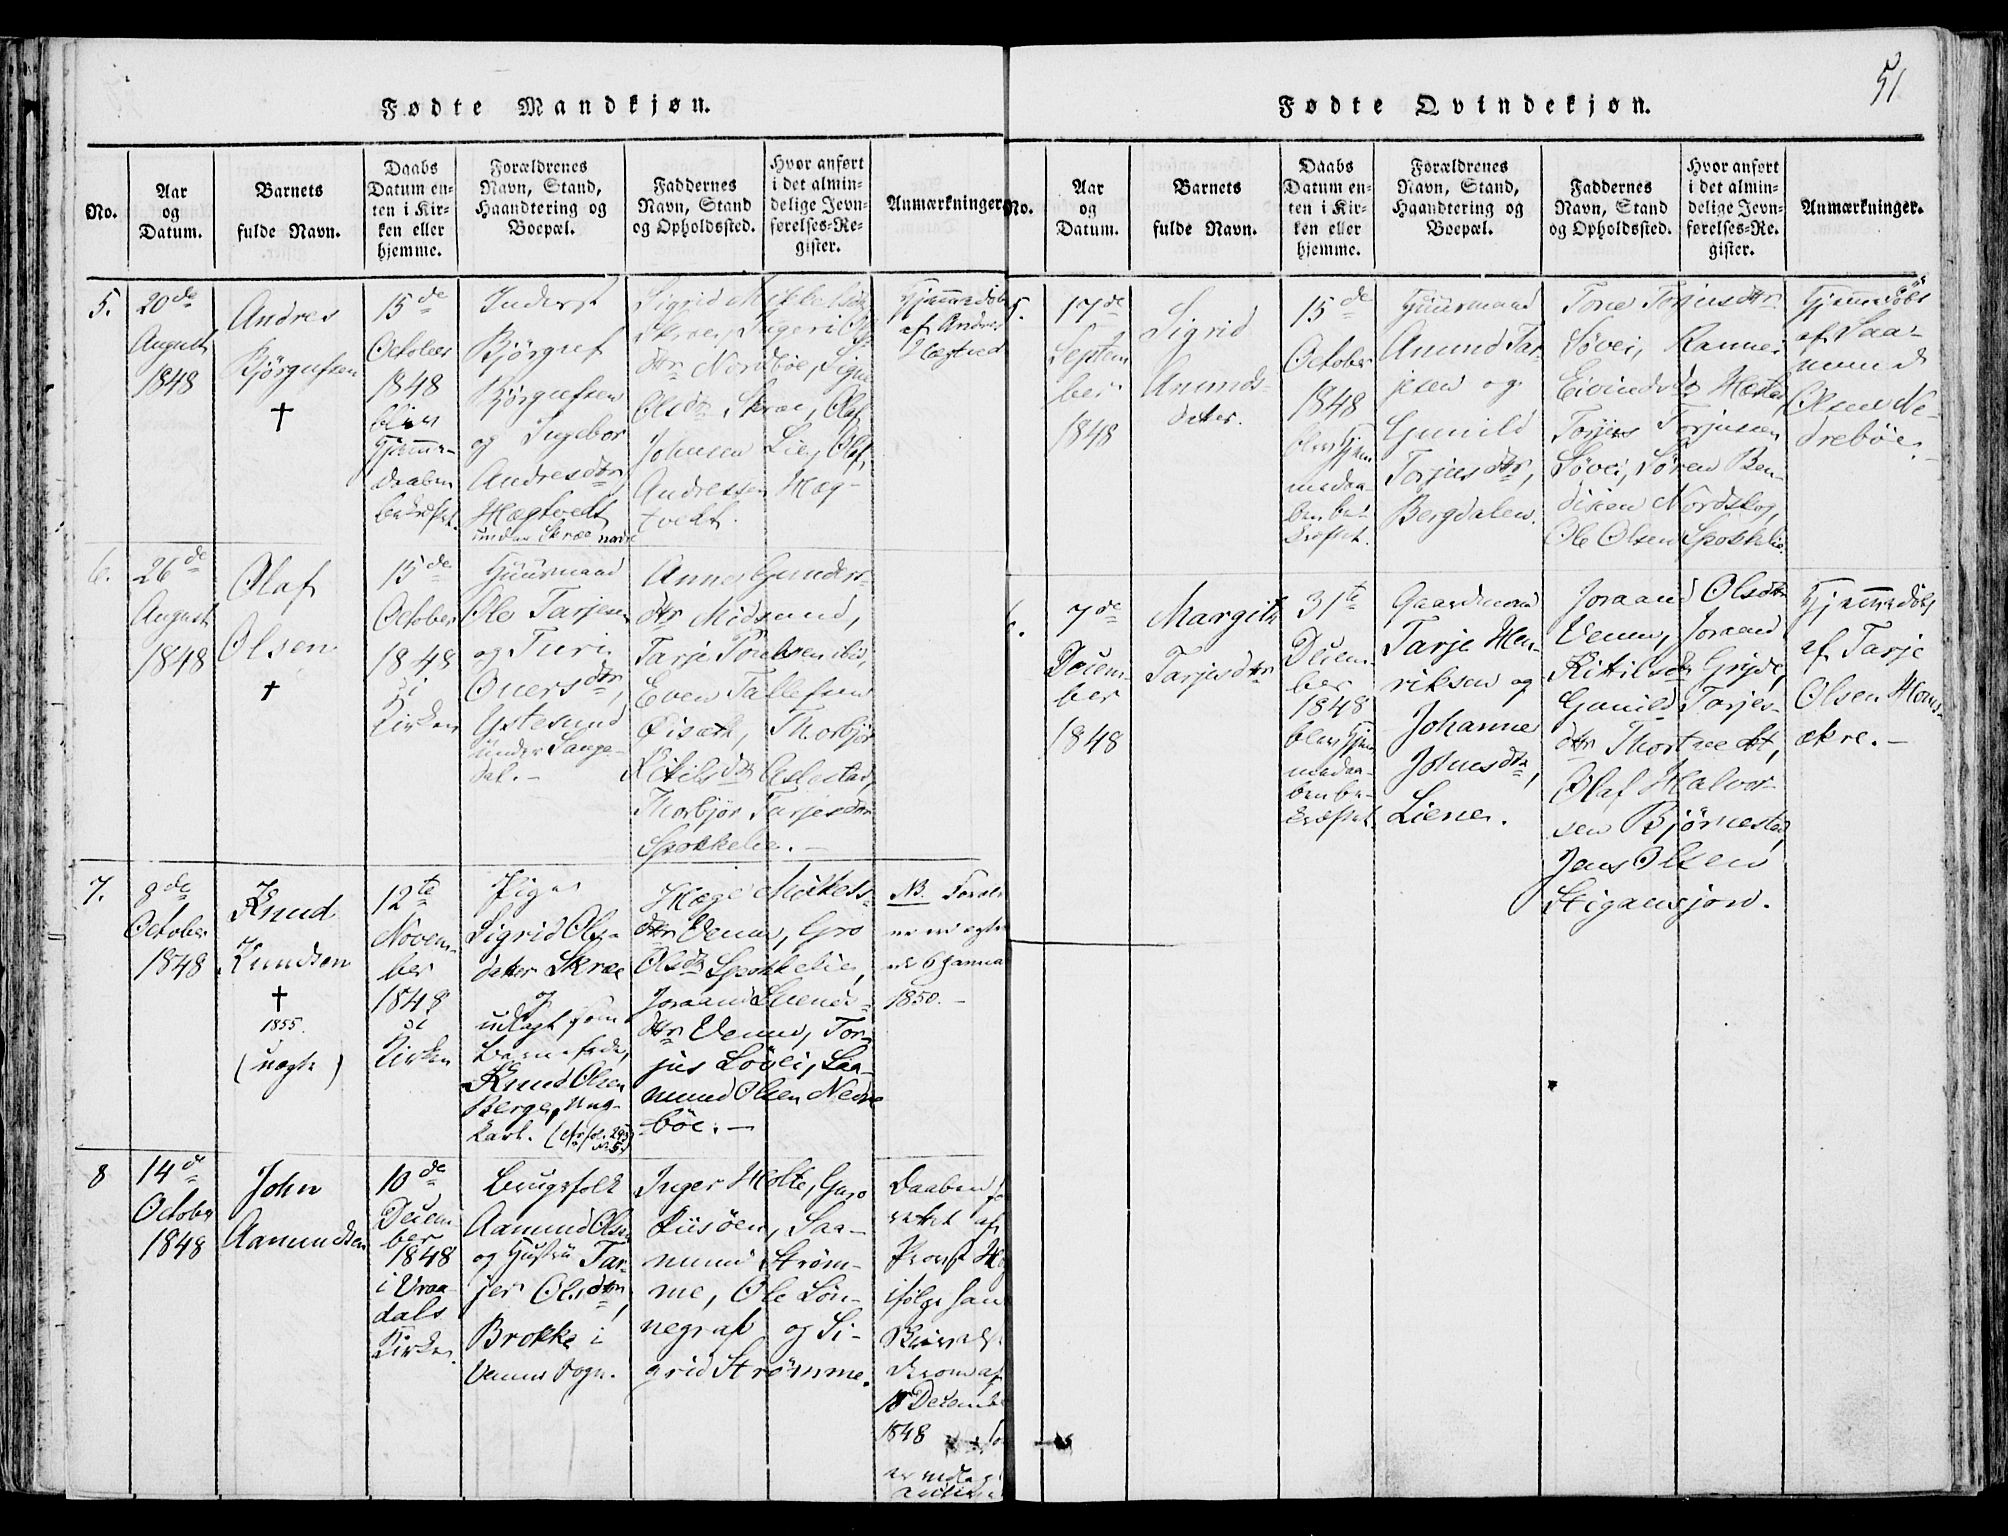 51
Fødte Mandkjøn.
No.
Aar
og
Datum.
Barnets
fulde Navn.
Daabs
Datum en-
ten i Kir-
ken eller
hjemme.
Forældrenes
Navn, Stand,
Haandtering og
Boepæl.
Faddernes
Navn, Stand
og Opholdssted.
Hvor anført
i det almin-
delige Jevn-
førelses-Re-
gister.
Anmærkninger
5.
20de
August
1848
Andres
Bjørgufsen
†
15de
October
1848
blev
Hjemme-
daaben
bekræftet.
Inderst
Bjørguf
Bjørgufsen
og Ingebor
Andresdtr
Hægtvedt
under Skræ
Sigrid Mikkelsdtr
Skræe, Ingeri Ols-
dtr Nordbøe, Signe
Olsdtr Skræe, Olaf
Johnsen Lie, Olaf
Andressen Hæg-
tvedt.
Hjemmedøbt
af Andres
Hægtved
6.
26de
August
1848
Olaf
Olsen
†
15de
October
1848
i
Kirken
Huusmand
Ole Tarjesen
og Turi
Overs dtr,
Ystesund
under Lauge-
dal.-
Anne Gunders-
dtr Midsund,
Tarje Torbsen ibid,
Even Tallefsen
Øisæth, Thorbjør
Kitilsdtr Aslestad,
Thorbjør Tarjesdtr
Spokkelie.-
7.
8de
October
1848
Knud
Knudsen
†
1855.
(uægte)
12te
Novem-
ber
1848
i
Kirken
Pige
Sigrid Ols-
datter Skræe
og
udlagt som
Barnefader,
Knud Olsen
Berge, Ung-
karl.
Hæge Mikkels-
dtr Venum, Gro
Olsdtr Spokkelie,
Joraand Svends-
dtr Venum, Tor-
jus Løvei, Saa-
mund Olsen Nedre
bøe.-
NB. Foræl-
1850.-
8
14de
October
1848
John
Aamundsen
10de
Decem-
ber
1848
i Vraa-
dals
Kirke.
Brugsfolk
Aamund Olsen
og Hustru Tar-
jer Olsdtr,
Brokke i
Venums Sogn.
Inger Holte, Guro
Liisøen, Saa-
mund Strøm-
me, Ole Løn-
negraf og Si-
grid Strømme.
Daaben
af
Provst
ifølge hans
derom af
18 Decemb
1848
Fødte Qvindekjøn.
No.
Aar
og
Datum.
Barnets
fulde Navn.
Daabs
Datum en-
ten i Kir-
ken eller
hjemme.
Forældrenes
Navn, Stand,
Haandtering og
Boepæl.
Faddernes
Navn, Stand
og Opholdssted.
Hvor anført
i det almin-
delige Jevn-
førelses-Re-
gister.
Anmærkninger.
5.
17de
Septem
ber
1848
Sigrid
Anunds-
datter.
15de
October
1848
blev Hjem
medaa-
ben be-
kræftet.
Huusmand
Anund Tar-
jesen og
Gunild
Torjusdtr,
Bergdalen.
Tone Torjusdtr
Løvei, Rannei
Eivindsdtr Hæstad,
Torjus Torjusen
Løvei, Søren Ben-
dixen Nordskog,
Ole Olsen Spokkelie.
Hjemmedøbt
af Saa-
mund
Olsen Ne-
drebøe.
6.
7de
Decem-
ber
1848
Margith
Tarjesdtr
31te
Decem-
ber
1848
blev Hjem
medaa-
ben be-
kræftet.
Gaardmand
Tarje Hen-
riksen og
Johanne
Johnsdtr,
Liene.
Joraand Olsdtr
Venum, Joraand
Kittilsdtr Gryde,
Gunild Tarjes-
dtr Thortvedt,
Olaf Halvor-
sen Bjørnestad,
Jens Olsen
Stigansjord.
Hjemmedøbt
af Tarje
Olsen Homs-
ækre.-